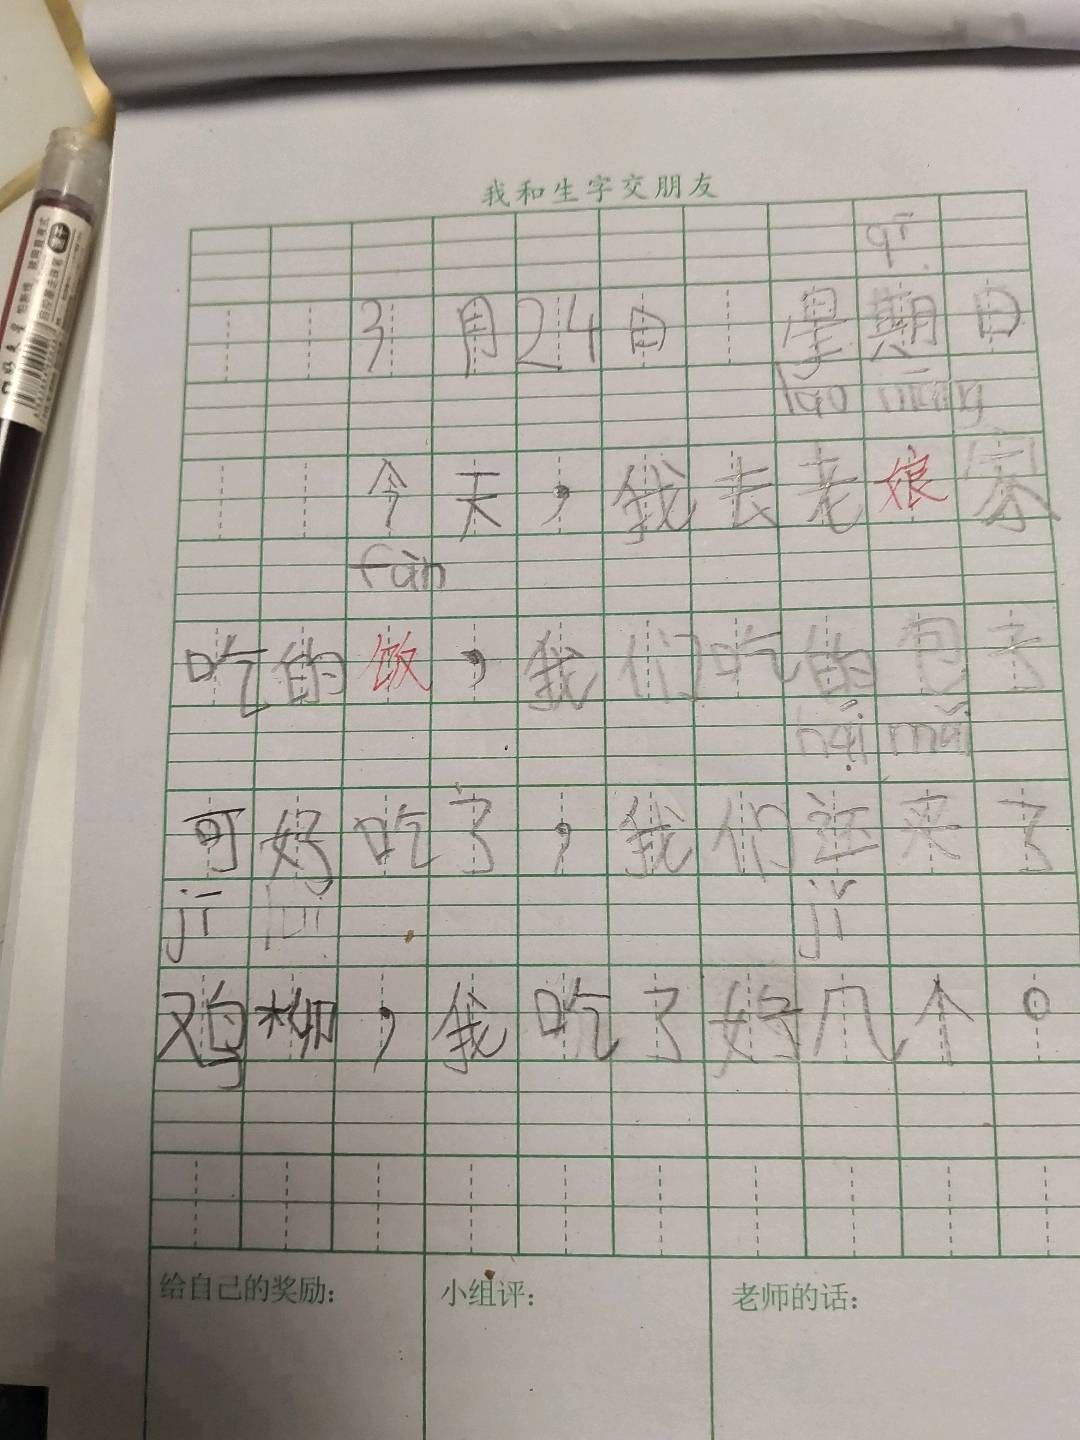 我和生字交朋友
qī
3月24日 星期日
lǎo niáng
今天，我去老娘家
fàn
吃的饭，我们吃的包子
hái mǎi
可好吃了，我们还买了
jī liǔ jǐ
鸡柳，我吃了好几个。
给自己的奖励：
小组评：
老师的话：